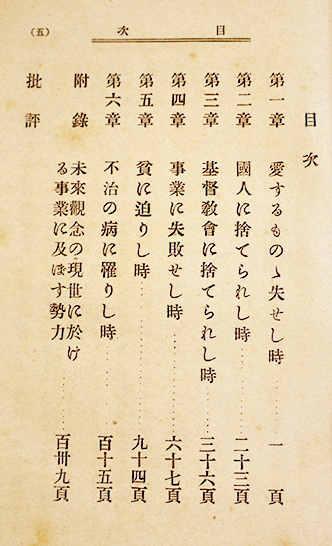 目次 (五)
目次
第一章 愛するものゝ失せし時………一頁
第二章 國人に捨てられし時………二十三頁
第三章 基督敎會に捨てられし時………三十六頁
第四章 事業に失敗せし時………六十七頁
第五章 貧に迫りし時………九十四頁
第六章 不治の病に罹りし時………百十五頁
附錄 未來觀念の現世に於け
る事業に及ぼす勢力………百卅九頁
批評